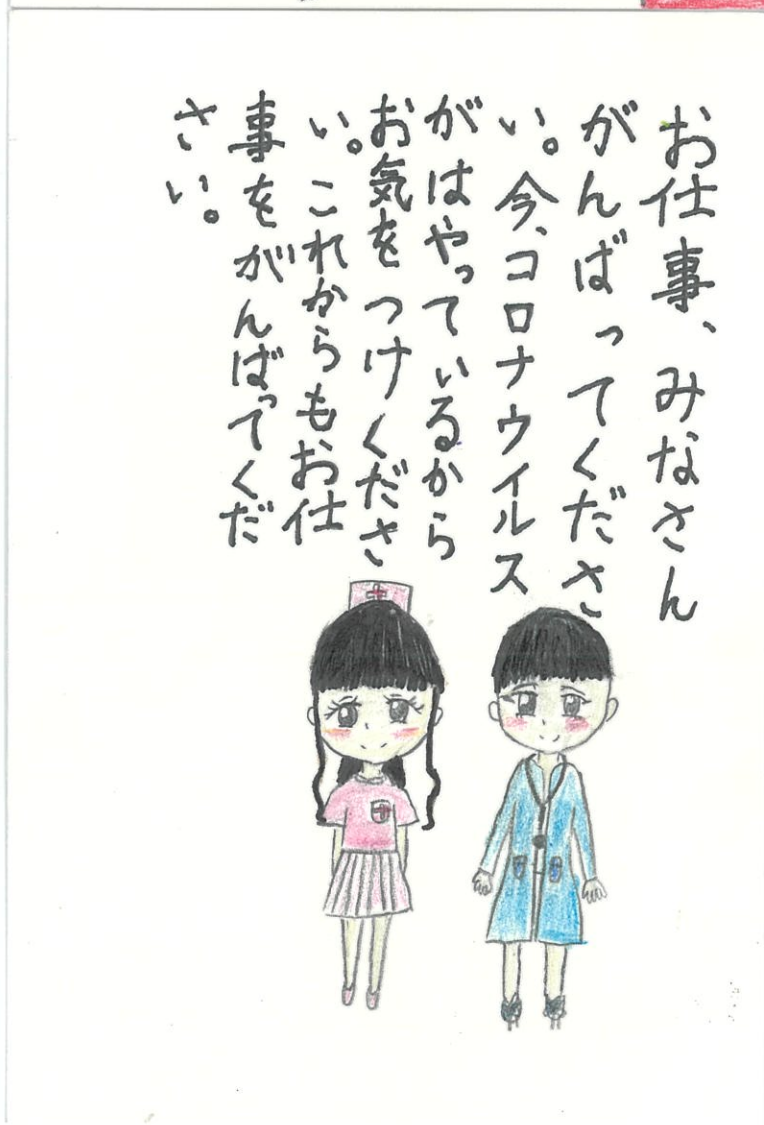 お仕事、みなさん
がんばってくださ
い。今、コロナウイルス
がはやっているから
お気をつけくださ
い。これからもお仕
事をがんばってくだ
さい。